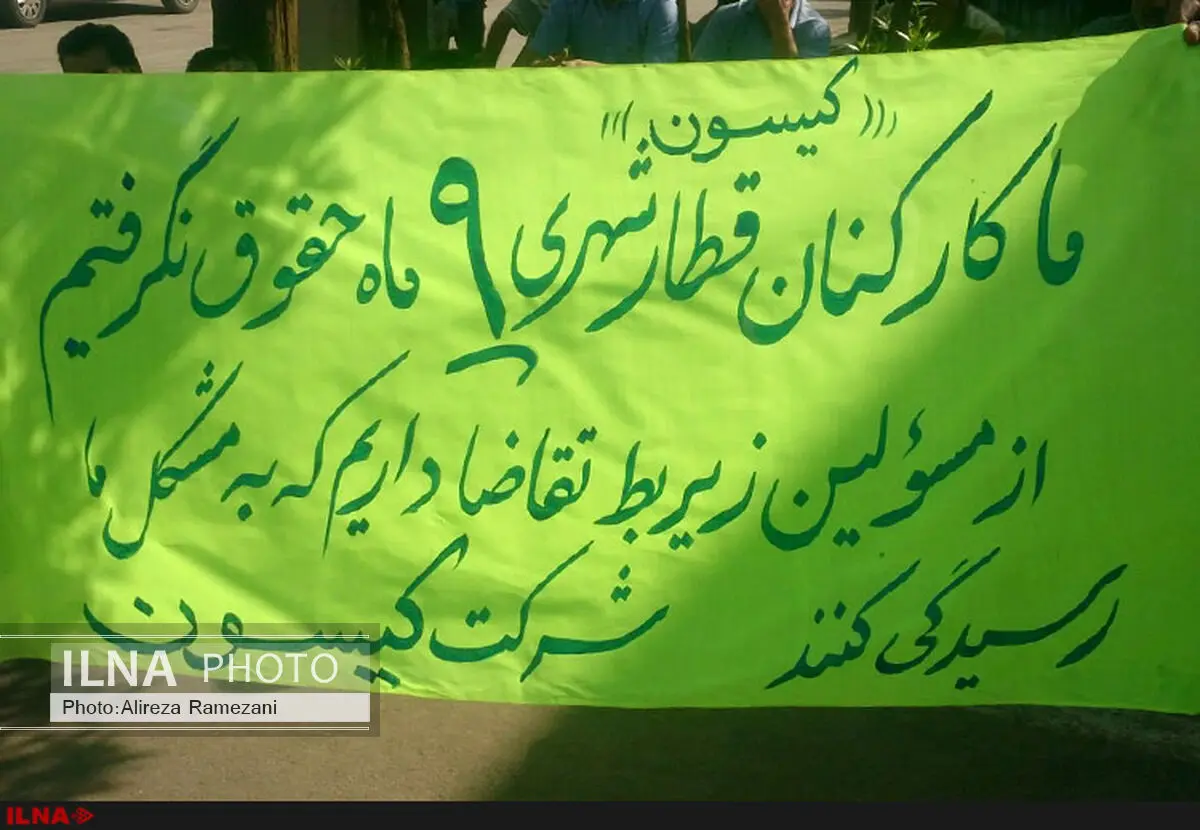 (((کیسون)))
ما کارکنان قطار شهری ۹ ماه حقوق نگرفتیم
از مسؤلین زیربط تقاضا داریم که به مشکل ما
رسیدگی کنند شرکت کیسون
ILNA PHOTO
Photo:Alireza Ramezani
ILNA